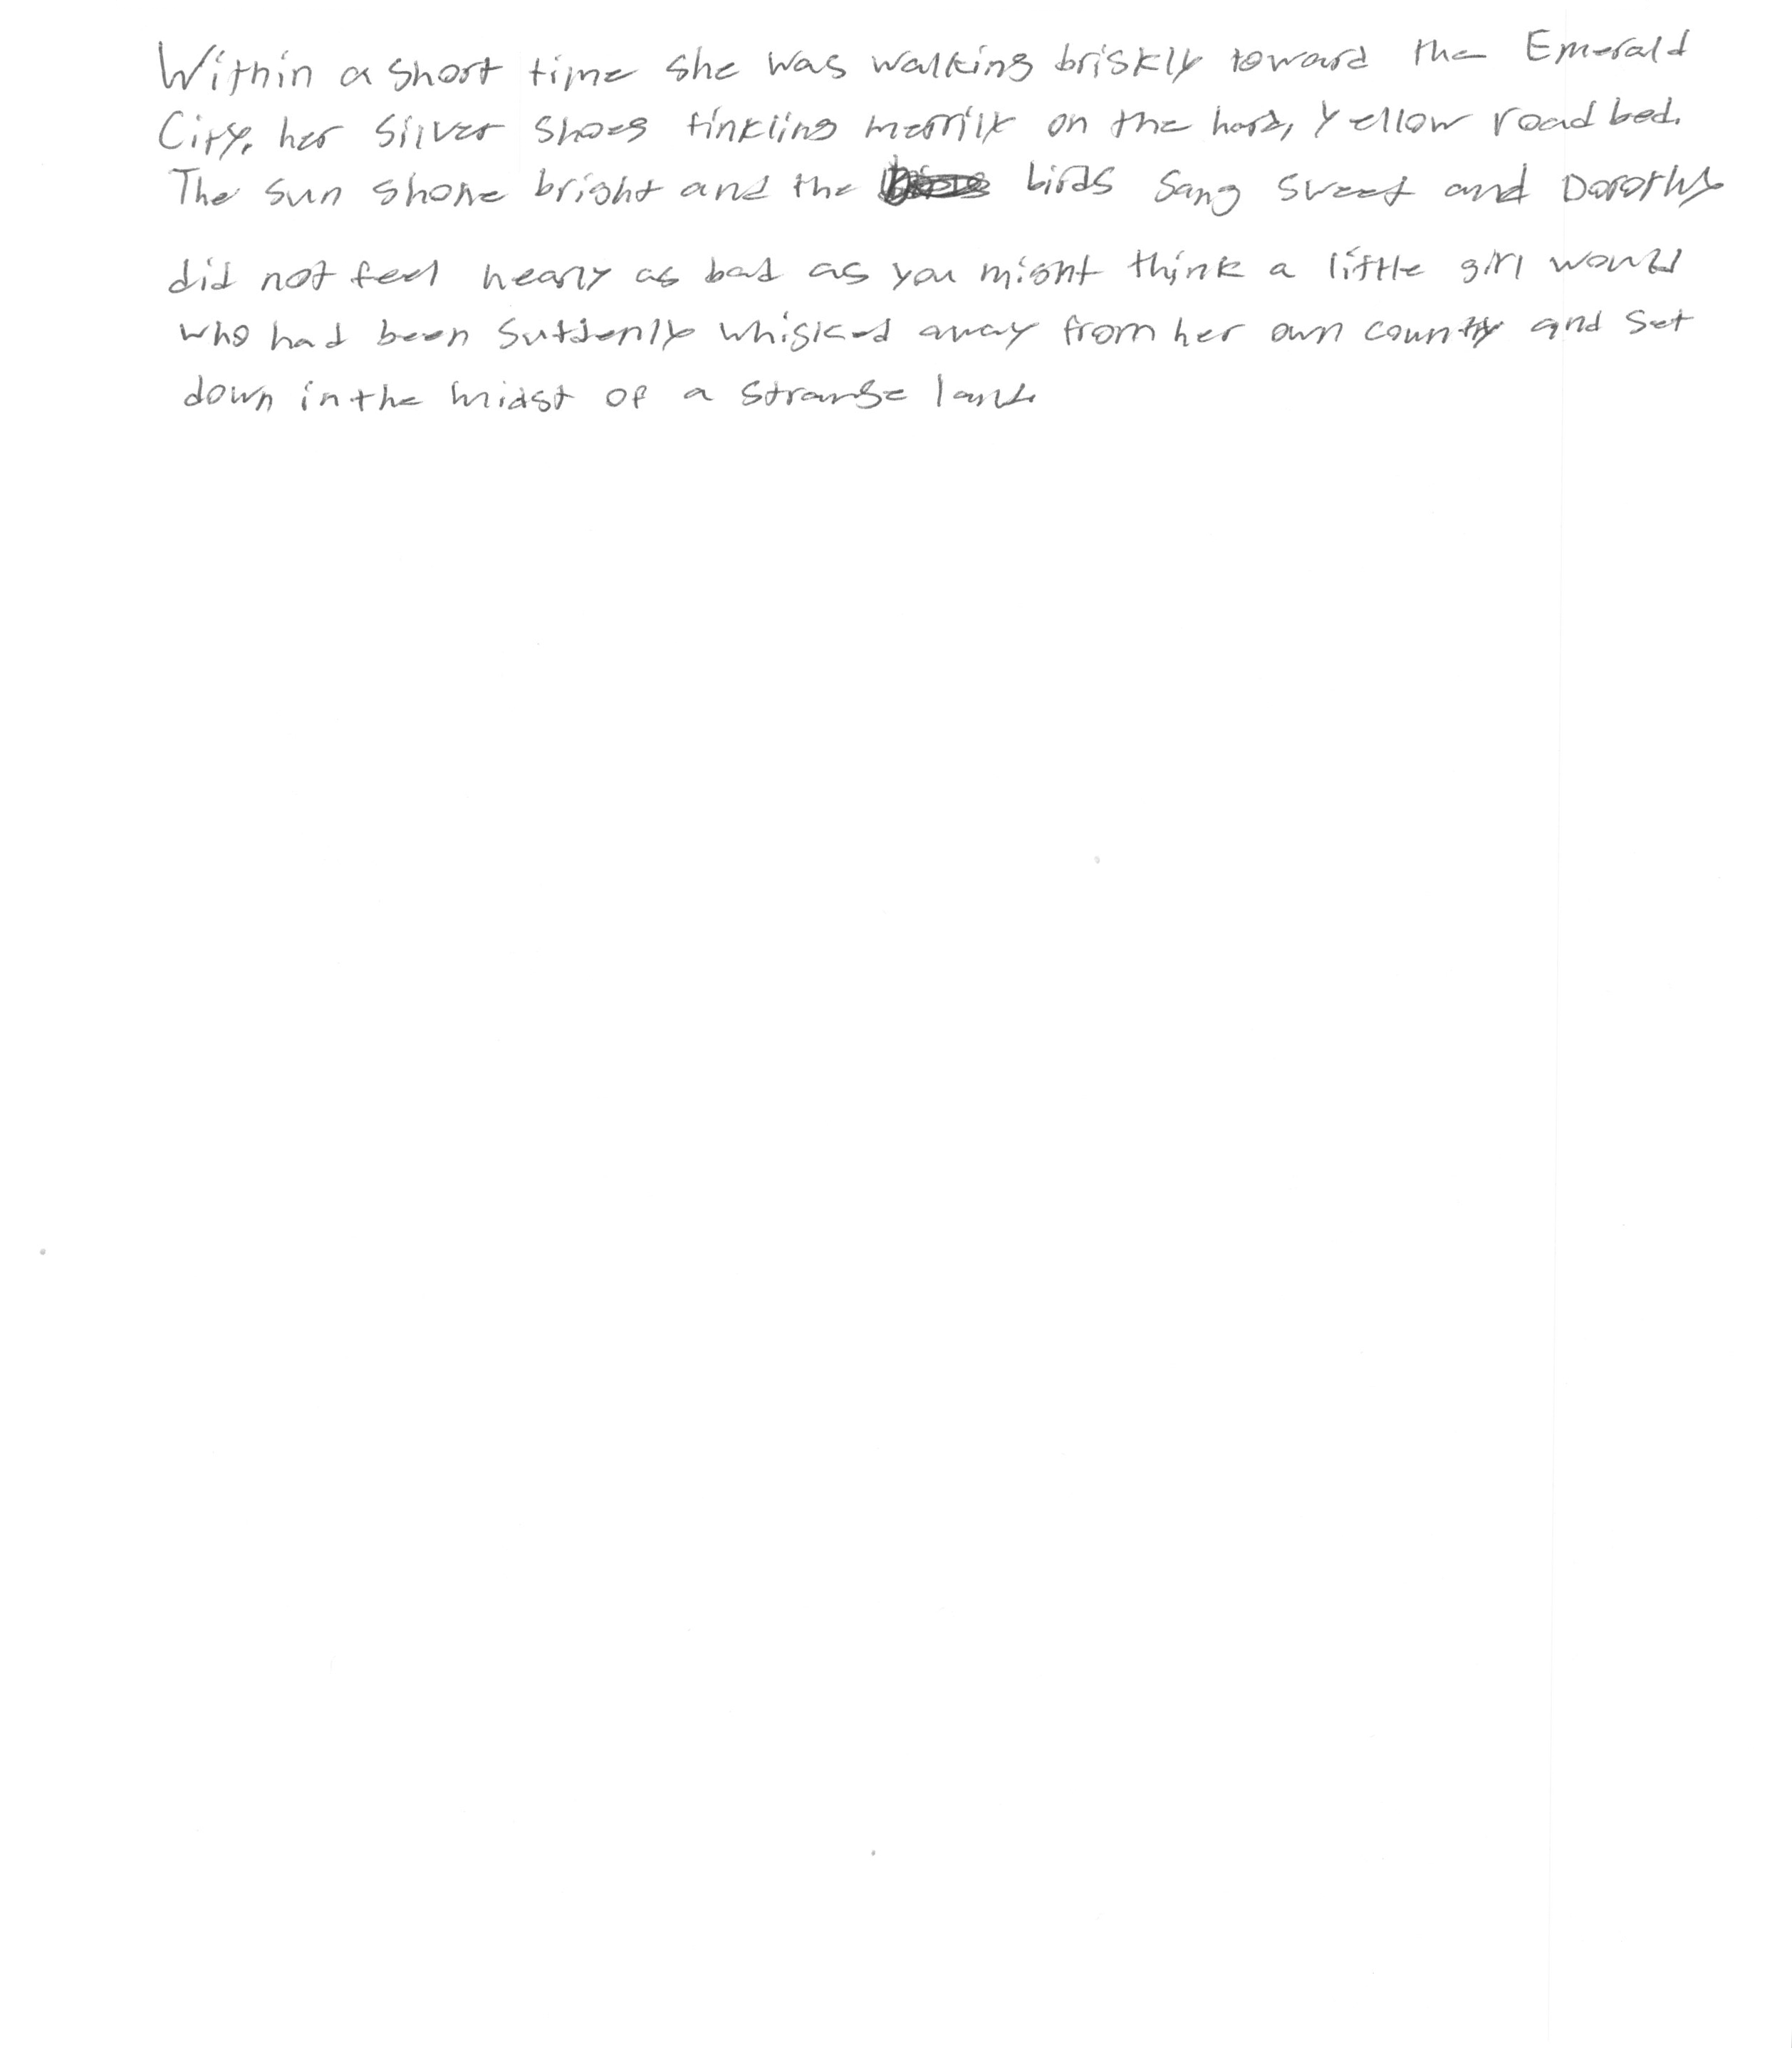 Within a short time she was walking briskly toward the Emerald
City, her Silver Shoes tinkling merrily on the hard, yellow road bed.
The sun shone bright and the birds sang sweet and Dorothy
did not feel nearly as bad as you might think a little girl would
who had been suddenly whisked away from her own country and set
down in the midst of a strange land.